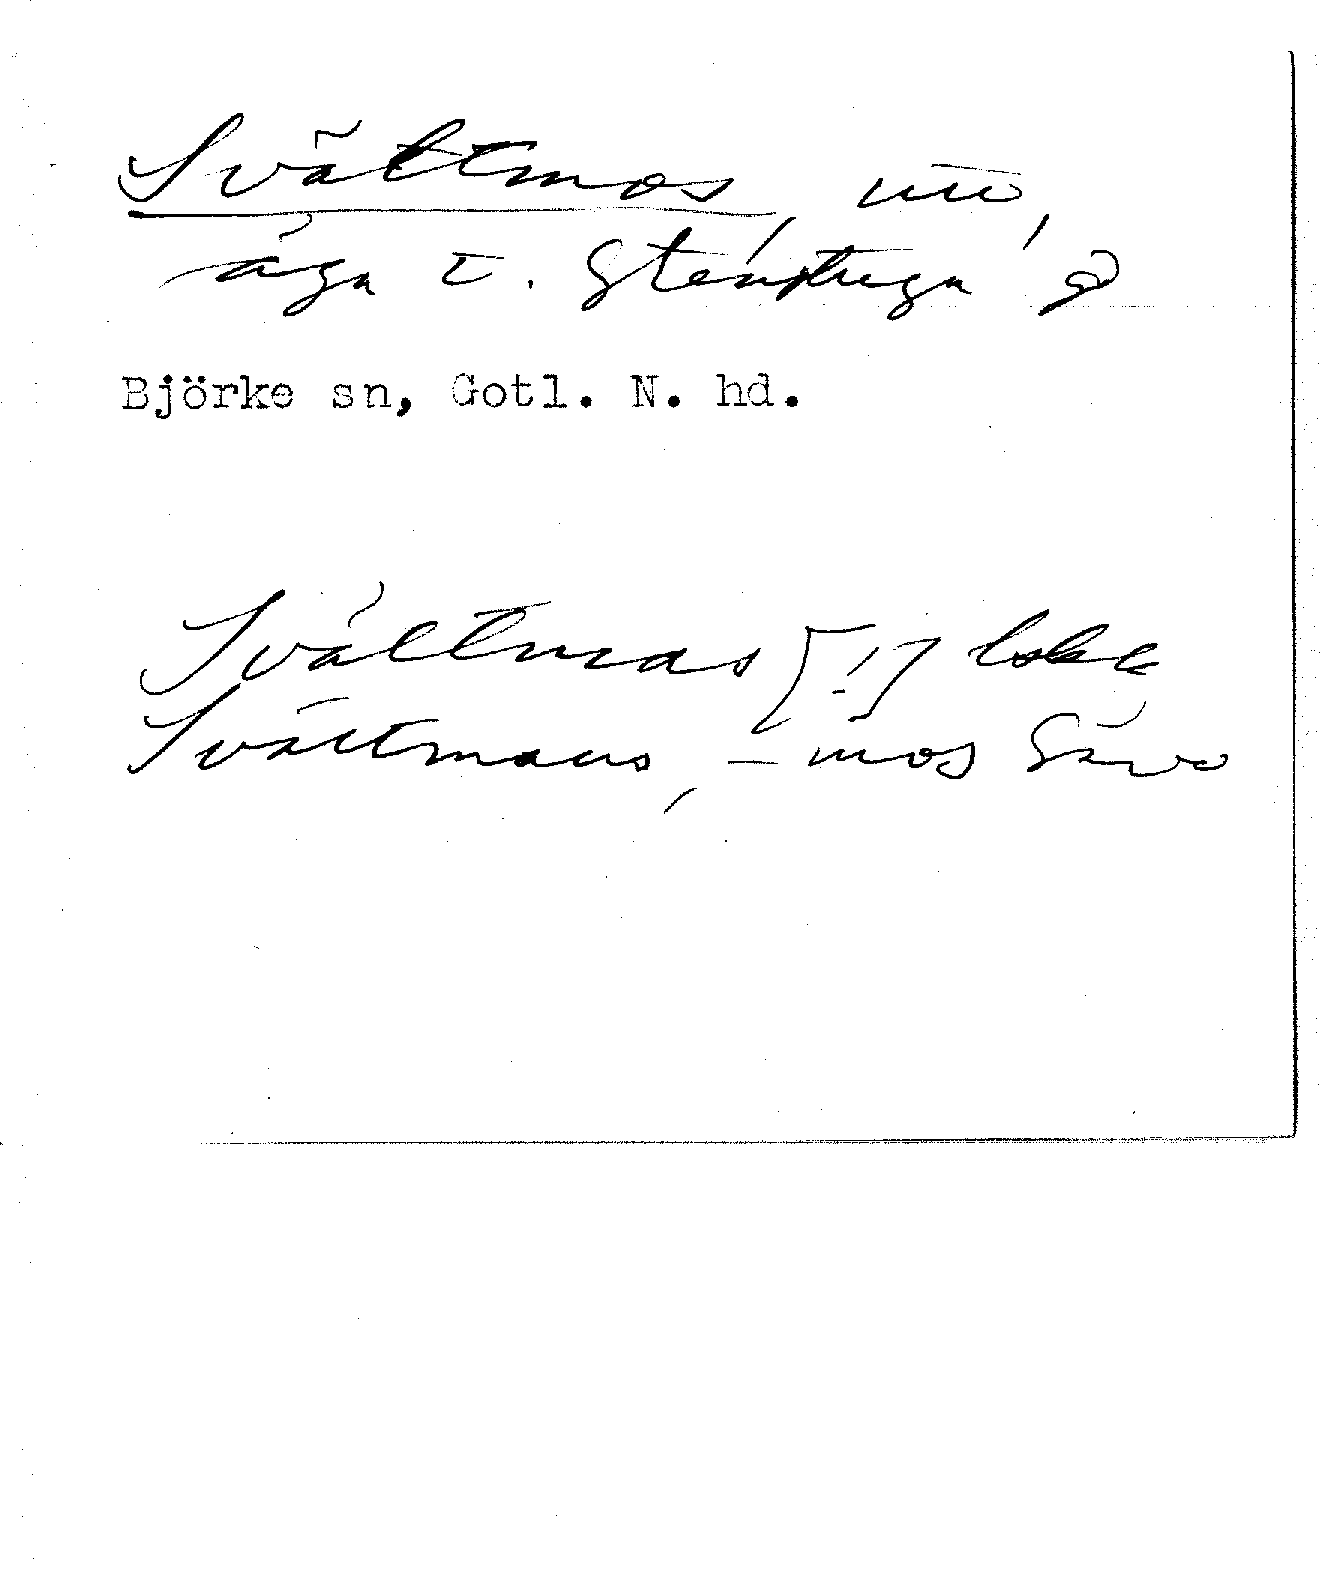 Svältmos,
äga t. Stenstugu
Björke sn, Gotl. N. hd.
Svältmas [!]
Svältmaus, -mos Säve